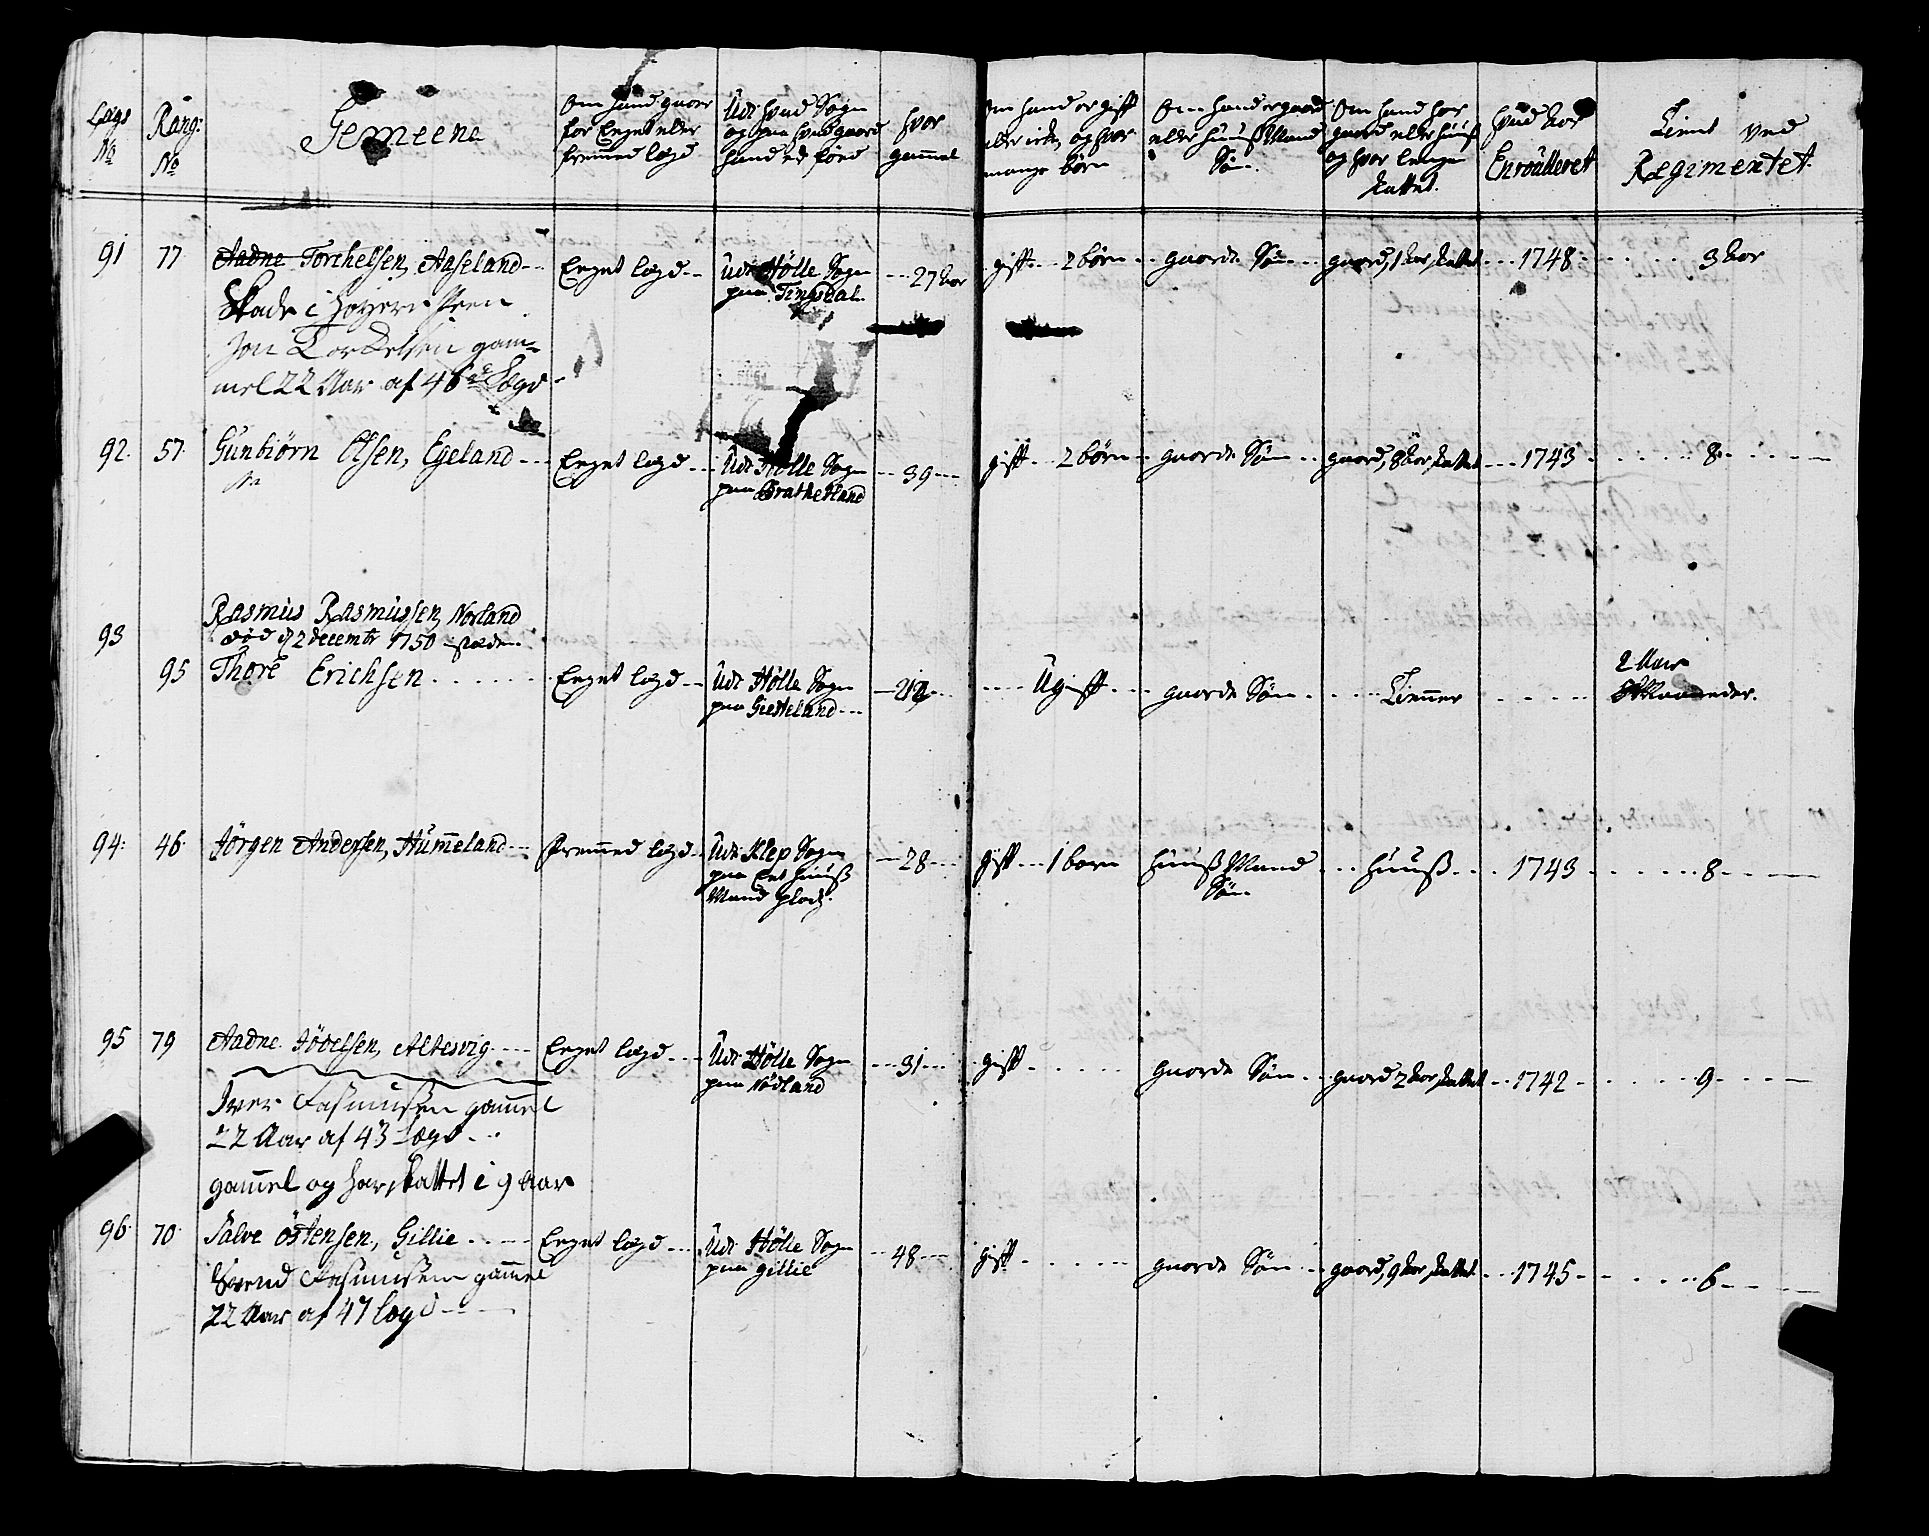 Lægs No
Rang: No
Gemeene
Om hand giører for Eeget eller fremmed lægd
Udi hvad Sogn og paa hvad gaard hand er föed
hvor gammel
Om hand er gift eller icke, og hvor mange börn
Om hand er gaard eller huus Mand Sön
Om hand har gaard eller huus og hvor lenge skattet.
hvad Aar Enroulleret
Tient ved Regimentet.
91 77 Aadne Torchelsen, Aaseland Eeget lægd Udi Hölle Sogn paa Tingsdal. 27 aar gift 2 börn gaards Sön gaard, 1 aar skattet 1748 3 aar
Jon Torkelsen gam=
mel 22 Aar af 46de Lægd
92. 57. Gunbiörn Olsen, Egeland Eeget lægd Udi Hölle Sogn paa Bratheland 39 gift 2 börn gaards Sön gaard, 8 aar skattet 1743 8
93 Rasmus Rasmussen, Norland
död d 2 decembr 1750 i steden
95 Thore Erichsen Eeget lægd Udi Hölle Sogn paa Gietteland Ugift gaards Sön Tienner 2 Aar Maaneder.
94: 46. Jörgen Andersen, Hummeland fremmed lægd Udi Klep Sogn paa Eet huuß Mand Plads. 28 gift 1 barn Huuß Mand Sön Huuß 1743 8
95 79 Aadne Jödelsen, Altesvig Eeget lægd Udi Hölle Sogn paa Nödland 31 gift gaards Sön gaard 2 aar skattet 1742 9
Iver Rasmusen gammel
22 Aar af 43 Lægd
gammel og har skattet i 9 Aar
96. 70. Salve Östensen, Gillie Eeget lægd Udi Hölle Sogn paa gillie 48 gift gaards Sön gaard, 9 aar skattet 1745 6
Svend Rasmusen gammel
22 Aar af 47 Lægd